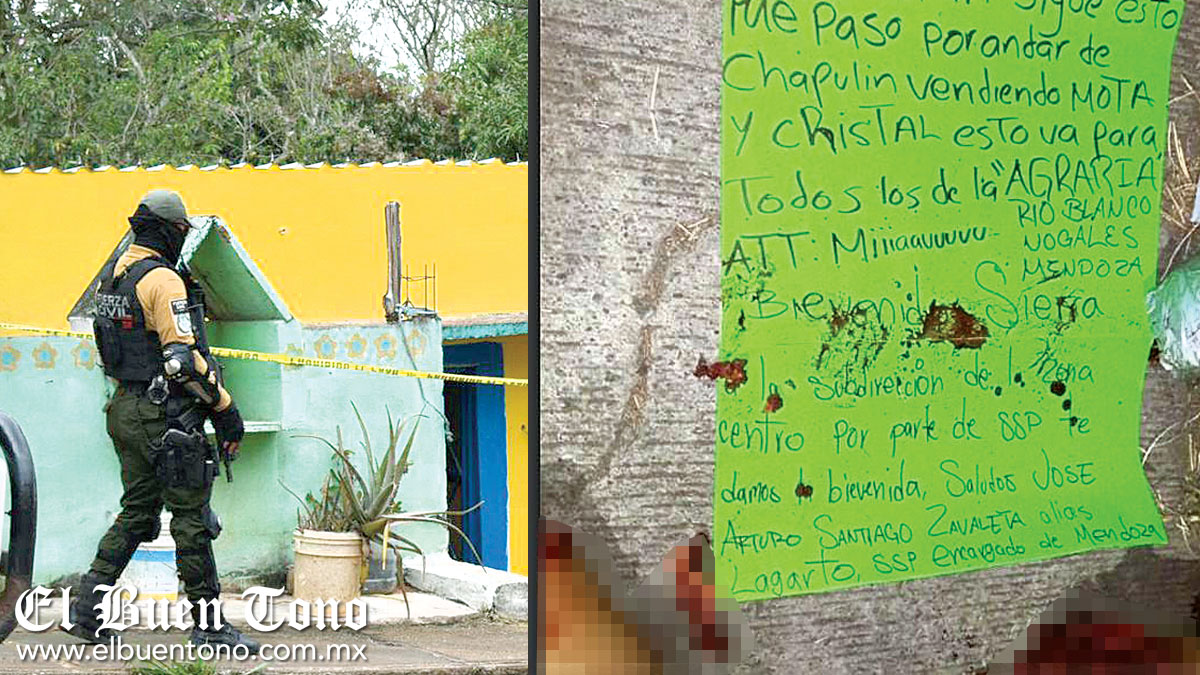 FUERZA
CIVIL
El Buen Tono
www.elbuentono.com.mx
sigue esto
fue paso por andar de
Chapulin vendiendo MOTA
y christal esto va para
Todos los de la "AGRARIA"
RIO BLANCO
NOGALES
MENDOZA
ATT: Miiiaauuuuu
Bienvenido Sierra
a la subdirección de la zona
centro por parte de SSP te
damos la bienvenida, Saludos JOSE
ARTURO SANTIAGO ZAVALETA alias
Lagarto, SSP encargado de Mendoza